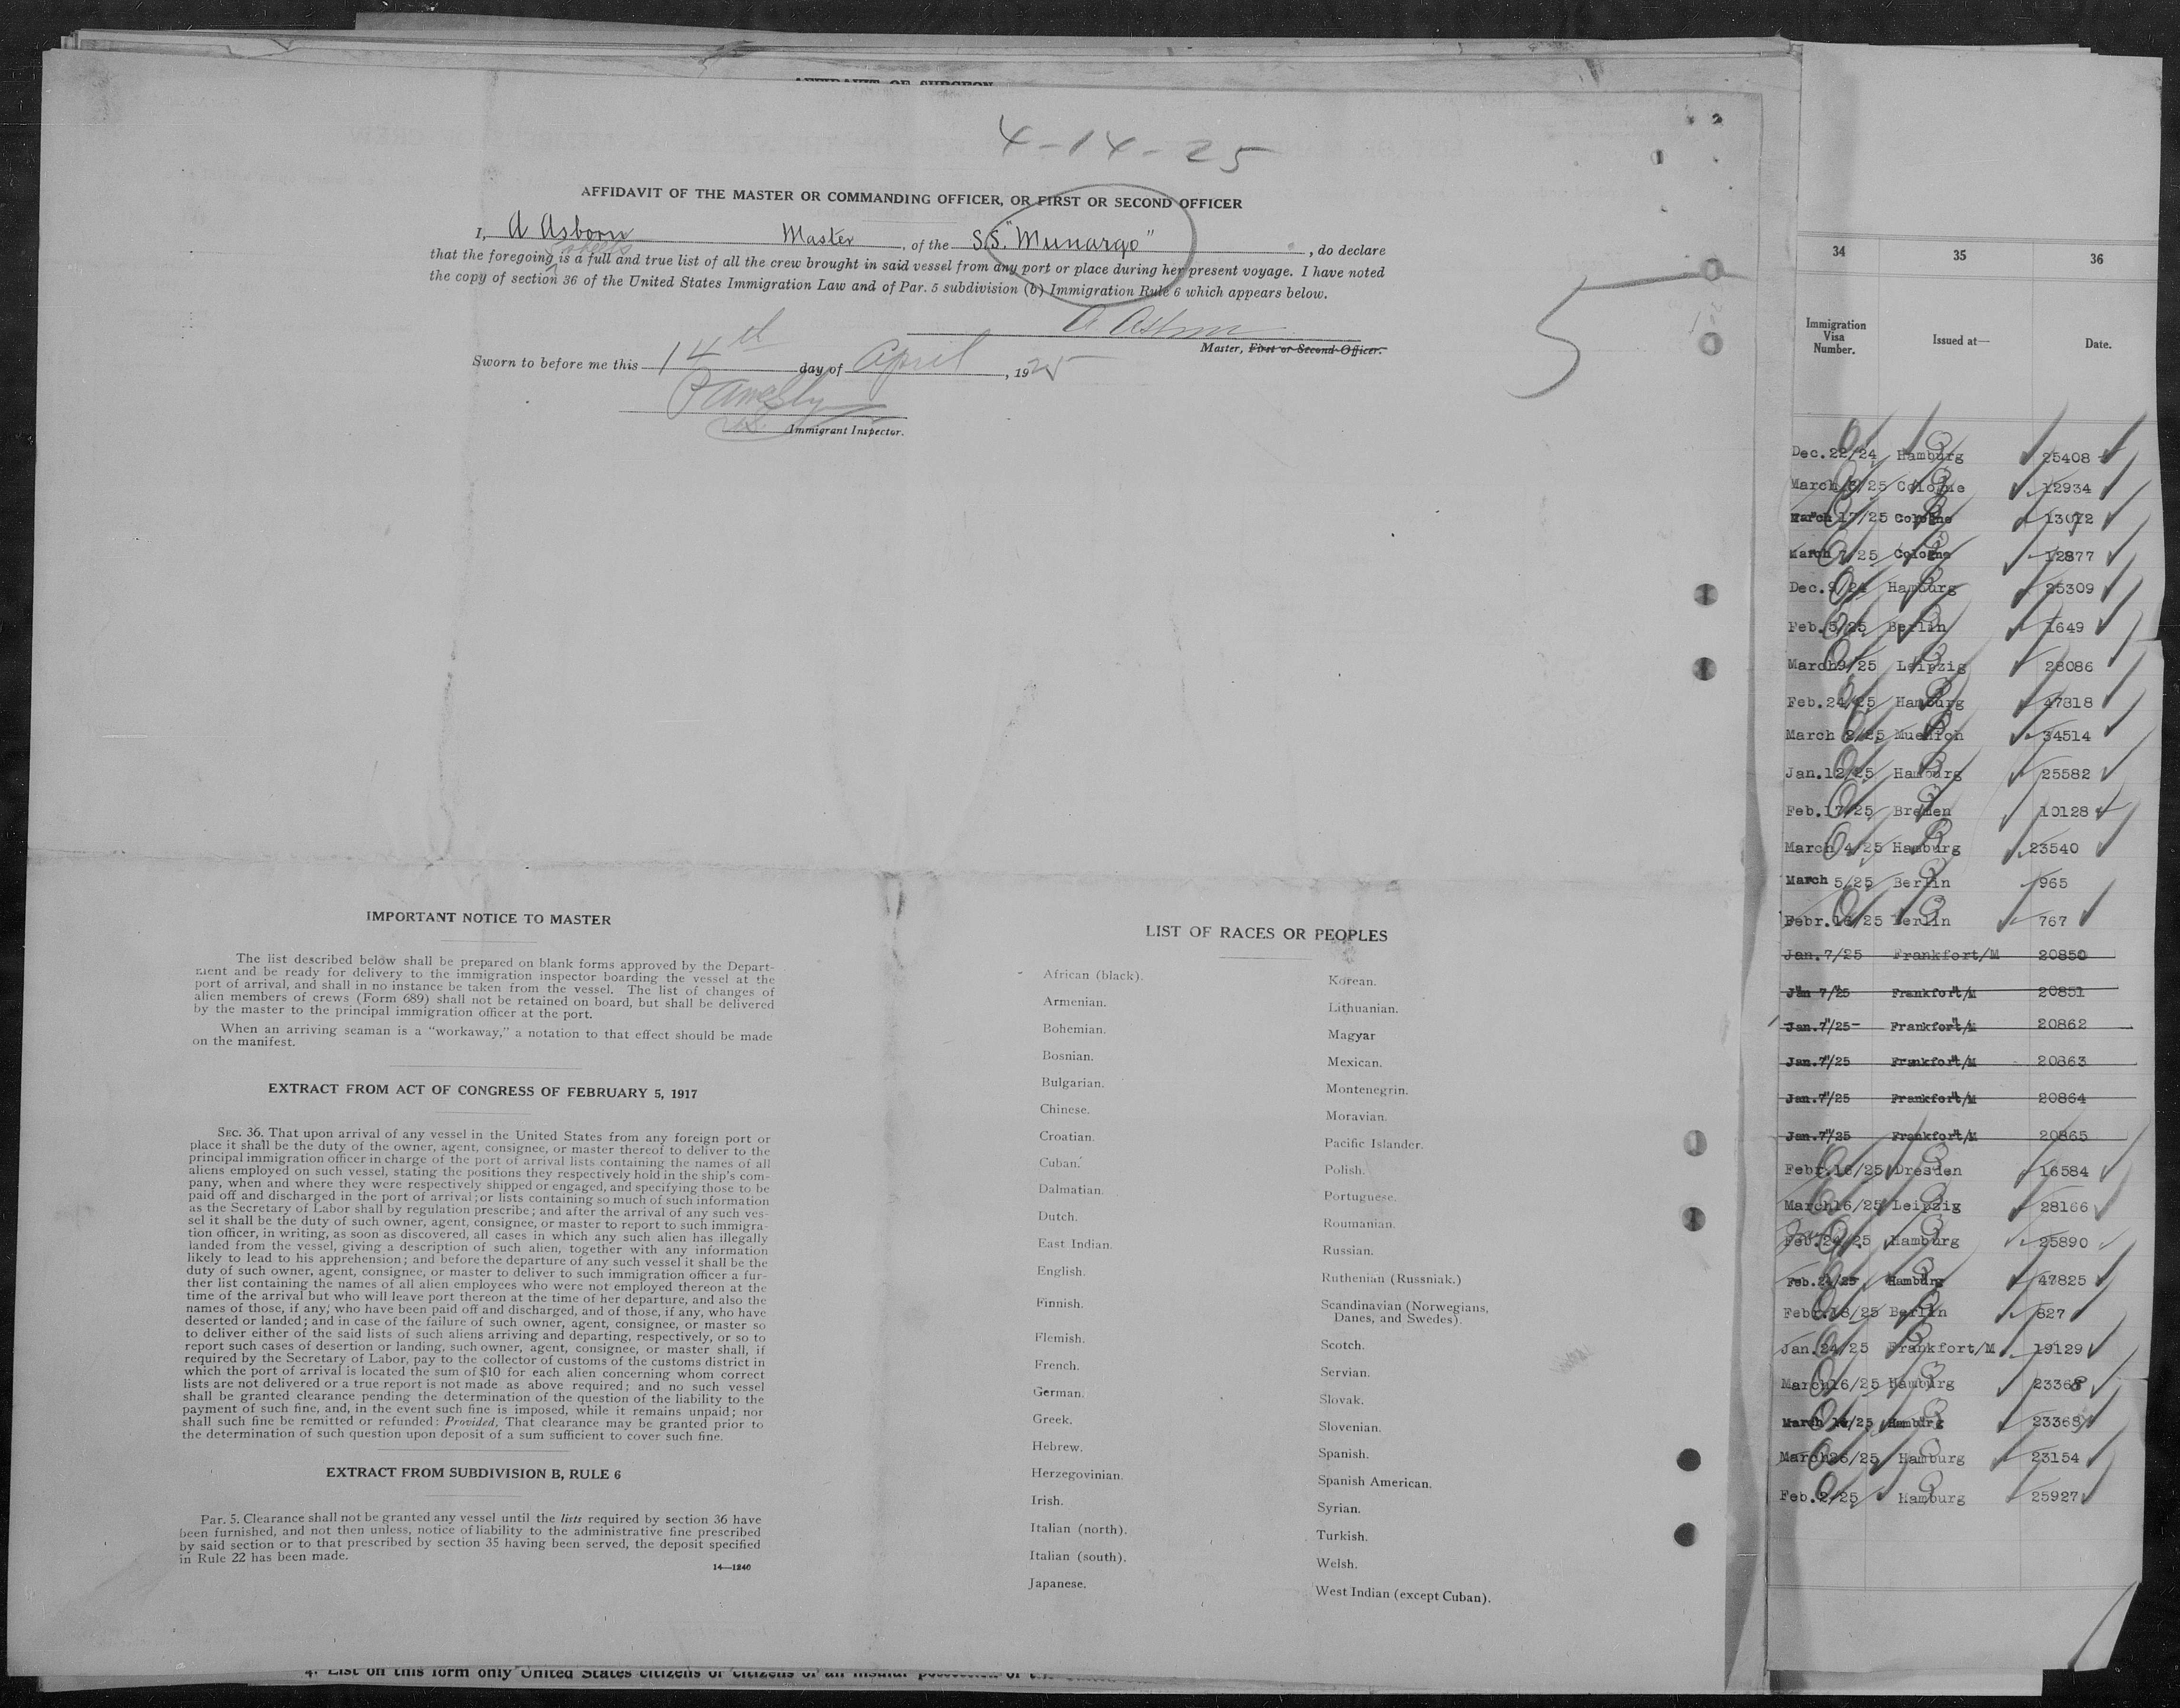 4-14-25
AFFIDAVIT OF THE MASTER OR COMMANDING OFFICER, OR FIRST OR SECOND OFFICER
I, A Asborn Master, of the S.S. "Munargo", do declare
5 sheets
that the foregoing is a full and true list of all the crew brought in said vessel from any port or place during her present voyage. I have noted
the copy of section 36 of the United States Immigration Law and of Par. 5 subdivision (b) Immigration Rule 6 which appears below.
Master, First or Second Officer.
Sworn to before me this 14th day of April, 1925
Immigrant Inspector.
5
IMPORTANT NOTICE TO MASTER
The list described below shall be prepared on blank forms approved by the Depart-
ment and be ready for delivery to the immigration inspector boarding the vessel at the
port of arrival, and shall in no instance be taken from the vessel. The list of changes of
alien members of crews (Form 689) shall not be retained on board, but shall be delivered
by the master to the principal immigration officer at the port.
When an arriving seaman is a "workaway," a notation to that effect should be made
on the manifest.
EXTRACT FROM ACT OF CONGRESS OF FEBRUARY 5, 1917
SEC. 36. That upon arrival of any vessel in the United States from any foreign port or
place it shall be the duty of the owner, agent, consignee, or master thereof to deliver to the
principal immigration officer in charge of the port of arrival lists containing the names of all
aliens employed on such vessel, stating the positions they respectively hold in the ship's com-
pany, when and where they were respectively shipped or engaged, and specifying those to be
paid off and discharged in the port of arrival; or lists containing so much of such information
as the Secretary of Labor shall by regulation prescribe; and after the arrival of any such ves-
sel it shall be the duty of such owner, agent, consignee, or master to report to such immigra-
tion officer, in writing, as soon as discovered, all cases in which any such alien has illegally
landed from the vessel, giving a description of such alien, together with any information
likely to lead to his apprehension; and before the departure of any such vessel it shall be the
duty of such owner, agent, consignee, or master to deliver to such immigration officer a fur-
ther list containing the names of all alien employees who were not employed thereon at the
time of the arrival but who will leave port thereon at the time of her departure, and also the
names of those, if any, who have been paid off and discharged, and of those, if any, who have
deserted or landed; and in case of the failure of such owner, agent, consignee, or master so
to deliver either of the said lists of such aliens arriving and departing, respectively, or so to
report such cases of desertion or landing, such owner, agent, consignee, or master shall, if
required by the Secretary of Labor, pay to the collector of customs of the customs district in
which the port of arrival is located the sum of $10 for each alien concerning whom correct
lists are not delivered or a true report is not made as above required; and no such vessel
shall be granted clearance pending the determination of the question of the liability to the
payment of such fine, and, in the event such fine is imposed, while it remains unpaid; nor
shall such fine be remitted or refunded: Provided, That clearance may be granted prior to
the determination of such question upon deposit of a sum sufficient to cover such fine.
EXTRACT FROM SUBDIVISION B, RULE 6
Par. 5. Clearance shall not be granted any vessel until the lists required by section 36 have
been furnished, and not then unless, notice of liability to the administrative fine prescribed
by said section or to that prescribed by section 35 having been served, the deposit specified
in Rule 22 has been made.
14—1240
LIST OF RACES OR PEOPLES
African (black).
Armenian.
Bohemian.
Bosnian.
Bulgarian.
Chinese.
Croatian.
Cuban.
Dalmatian.
Dutch.
East Indian.
English.
Finnish.
Flemish.
French.
German.
Greek.
Hebrew.
Herzegovinian.
Irish.
Italian (north).
Italian (south).
Japanese.
Korean.
Lithuanian.
Magyar
Mexican.
Montenegrin.
Moravian.
Pacific Islander.
Polish.
Portuguese.
Roumanian.
Russian.
Ruthenian (Russniak.)
Scandinavian (Norwegians,
Danes, and Swedes).
Scotch.
Servian.
Slovak.
Slovenian.
Spanish.
Spanish American.
Syrian.
Turkish.
Welsh.
West Indian (except Cuban).
34 35 36
Immigration Visa Number. Issued at— Date.
Dec.22/24 Hamburg 25408
March /25 Cologne 12934
March 17/25 Cologne 13072
March 7/25 Cologne 12877
Dec.9/24 Hamburg 25309
Feb.5/25 Berlin 1649
March9/25 Leipzig 28086
Feb.24/25 Hamburg 47818
March 2/25 Muenich 34514
Jan.12/25 Hamburg 25582
Feb.17/25 Bremen 10128
March 4/25 Hamburg 23540
March 5/25 Berlin 965
Febr.16/25 Berlin 767
Jan.7/25 Frankfort/M 20850
Jan 7/25 Frankfort/M 20851
Jan.7/25 Frankfort/M 20862
Jan.7/25 Frankfort/M 20863
Jan.7/25 Frankfort/M 20864
Jan.7/25 Frankfort/M 20865
Febr.16/25 Dresden 16584
March16/25 Leipzig 28166
Feb.24/25 Hamburg 25890
Feb.24/25 Hamburg 47825
Febr.18/25 Berlin 827
Jan.24/25 Frankfort/M 19129
March16/25 Hamburg 23368
March 16/25 Hamburg 23369
March26/25 Hamburg 23154
Feb.2/25 Hamburg 25927